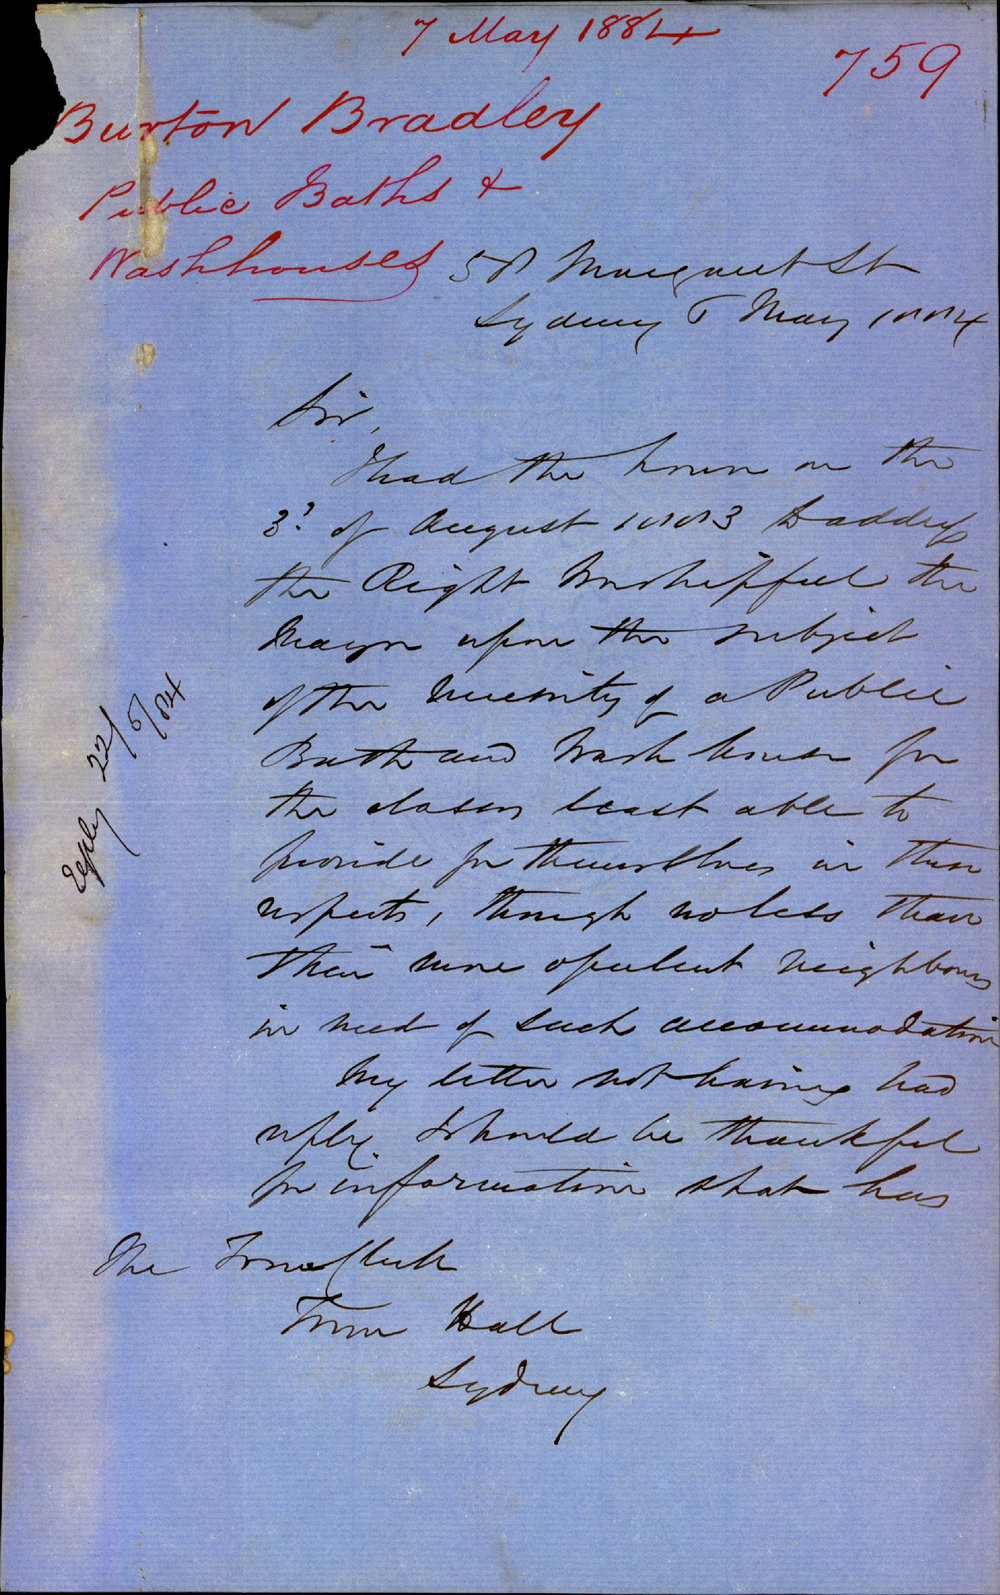 7 May 1884
759
Burton Bradley
Public Baths &
Washhouses
58 Margaret St
Sydney 6 May 1884
Sir,
I had the honor on the
3d of August 1883 to address
the Right Worshipful the
Mayor upon the subject
of the necessity of a Public
Bath and Wash house for
the classes least able to
provide for themselves in these
respects, though no less than
their more opulent neighbours
in need of such accommodation
My letter not having had
reply I should be thankful
for information what has
The Town Clerk
Town Hall
Sydney
reply 22/5/84